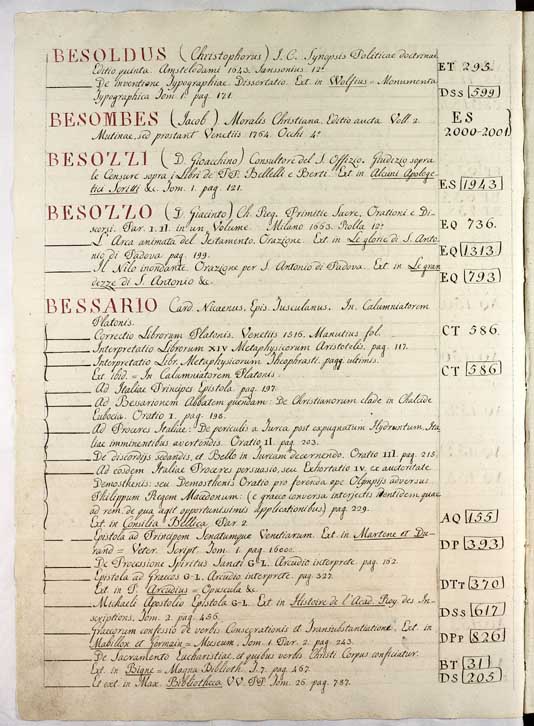 BESOLDUS (Christophorus) I. C. Synopsis Politicae doctrinae
Editio quinta. Amstelodami 1643. Janssonius 12º ET 295.
De inventione Typographiae. Dissertatio. Ext. in Wolfius = Monumenta
Typographica Tom. 1. pag. 171. DSS 599
BESOMBES (Jacob) Moralis Christiana. Editio aucta. Voll 2. ES
Mutinae, sed prostant Venetiis 1764. Occhi 4º 2000-2001
BESOZZI (D. Gioacchino) Consultore del S. Offizio. Giudizio sopra
le Censure sopra i Libri de' PP. Bellelli e Berti. Ext. in Alcuni Apologe-
tici Scritti &. Tom. 1. pag. 121. ES 1943
BESOZZO (D. Giacinto) Ch. Reg. Primitie Sacre, Orationi e Di-
scorsi. Par. I. II. in un Volume. Milano 1663. Rolla 12º EQ 736.
L' Arca animata del Testamento. Orazione. Ext in Le glorie di S. Anto-
nio di Padova pag. 199. EQ 1313
Il Nilo inondante. Orazione per S. Antonio di Padova. Ext. in Le gran
dezze di S. Antonio &c. EQ 793
BESSARIO Card. Nicaenus, Epis. Tusculanus. In Calumniatorem
Platonis.
Correctio Librorum Platonis. Venetiis 1516. Manutius fol. CT 586.
Interpretatio Librorum XIV Metaphysicorum Aristotelis. pag. 117.
Interpretatio Libr. Metaphysicorum Theophrasti. pagg. ultimis.
Ext. Ibid = In Calumniatorem Platonis. CT 586
Ad Italiae Principes Epistola. pag. 197.
Ad Bessarionem Abbatem quendam: De Christianorum clade in Chalcide
Euboeia. Oratio I. pag. 198.
Ad Proceres Italiae: De periculis a Turca post expugnatum Hydruntum, Ita
liae imminentibus avertendis. Oratio II. pag. 203.
De discordijs sedandis, et Bello in Turcam decernendo. Oratio III. pag. 215.
Ad eosdem Italiae Proceres persuasio, seu Exhortatio IV. ex auctoritate
Demosthenis: seu Demosthenis Oratio pro ferenda ope Olynthijs adversus
Philippum Regem Macedonum: (e graeco conversa interjectis identidem, quae
ad rem, de qua agit opportunissimis applicationibus) pag. 229.
Ext. in Consilia Bellica Par. 2. AQ 155
Epistola ad Principem Senatumque Venetiarum. Ext. in Martene et Du-
rand = Veter. Script. Tom. 1. pag. 1600. DP 393
De Processione Spiritus Sancti G-L. Arcudio interprete. pag. 162.
Epistola ad Graecos G-L. Arcudio interprete. pag. 327.
Ext. in P. Arcudius = Opuscula &c DTT 370
Mikaeli Apostolio Epistola G-L. Ext. in Histoire de l'Acad. Roy. des In-
scriptions. Tom. 2. pag. 456. DSS 617
Graecorum confessio de verbis Consecrationis et Transubstantiatione. Ext. in
Mabillox et Germain = Museum. Tom. 1. Par. 2. pag. 243. DPP 826
De Sacramento Eucharistiae, et quibus verbis Christi Corpus conficiatur.
Ext. in Bigne = Magna Biblioth. T. 7. pag. 467. BT 31
Et ext. in Max. Bibliotheca VV. PP. Tom. 26. pag. 787. DS 205